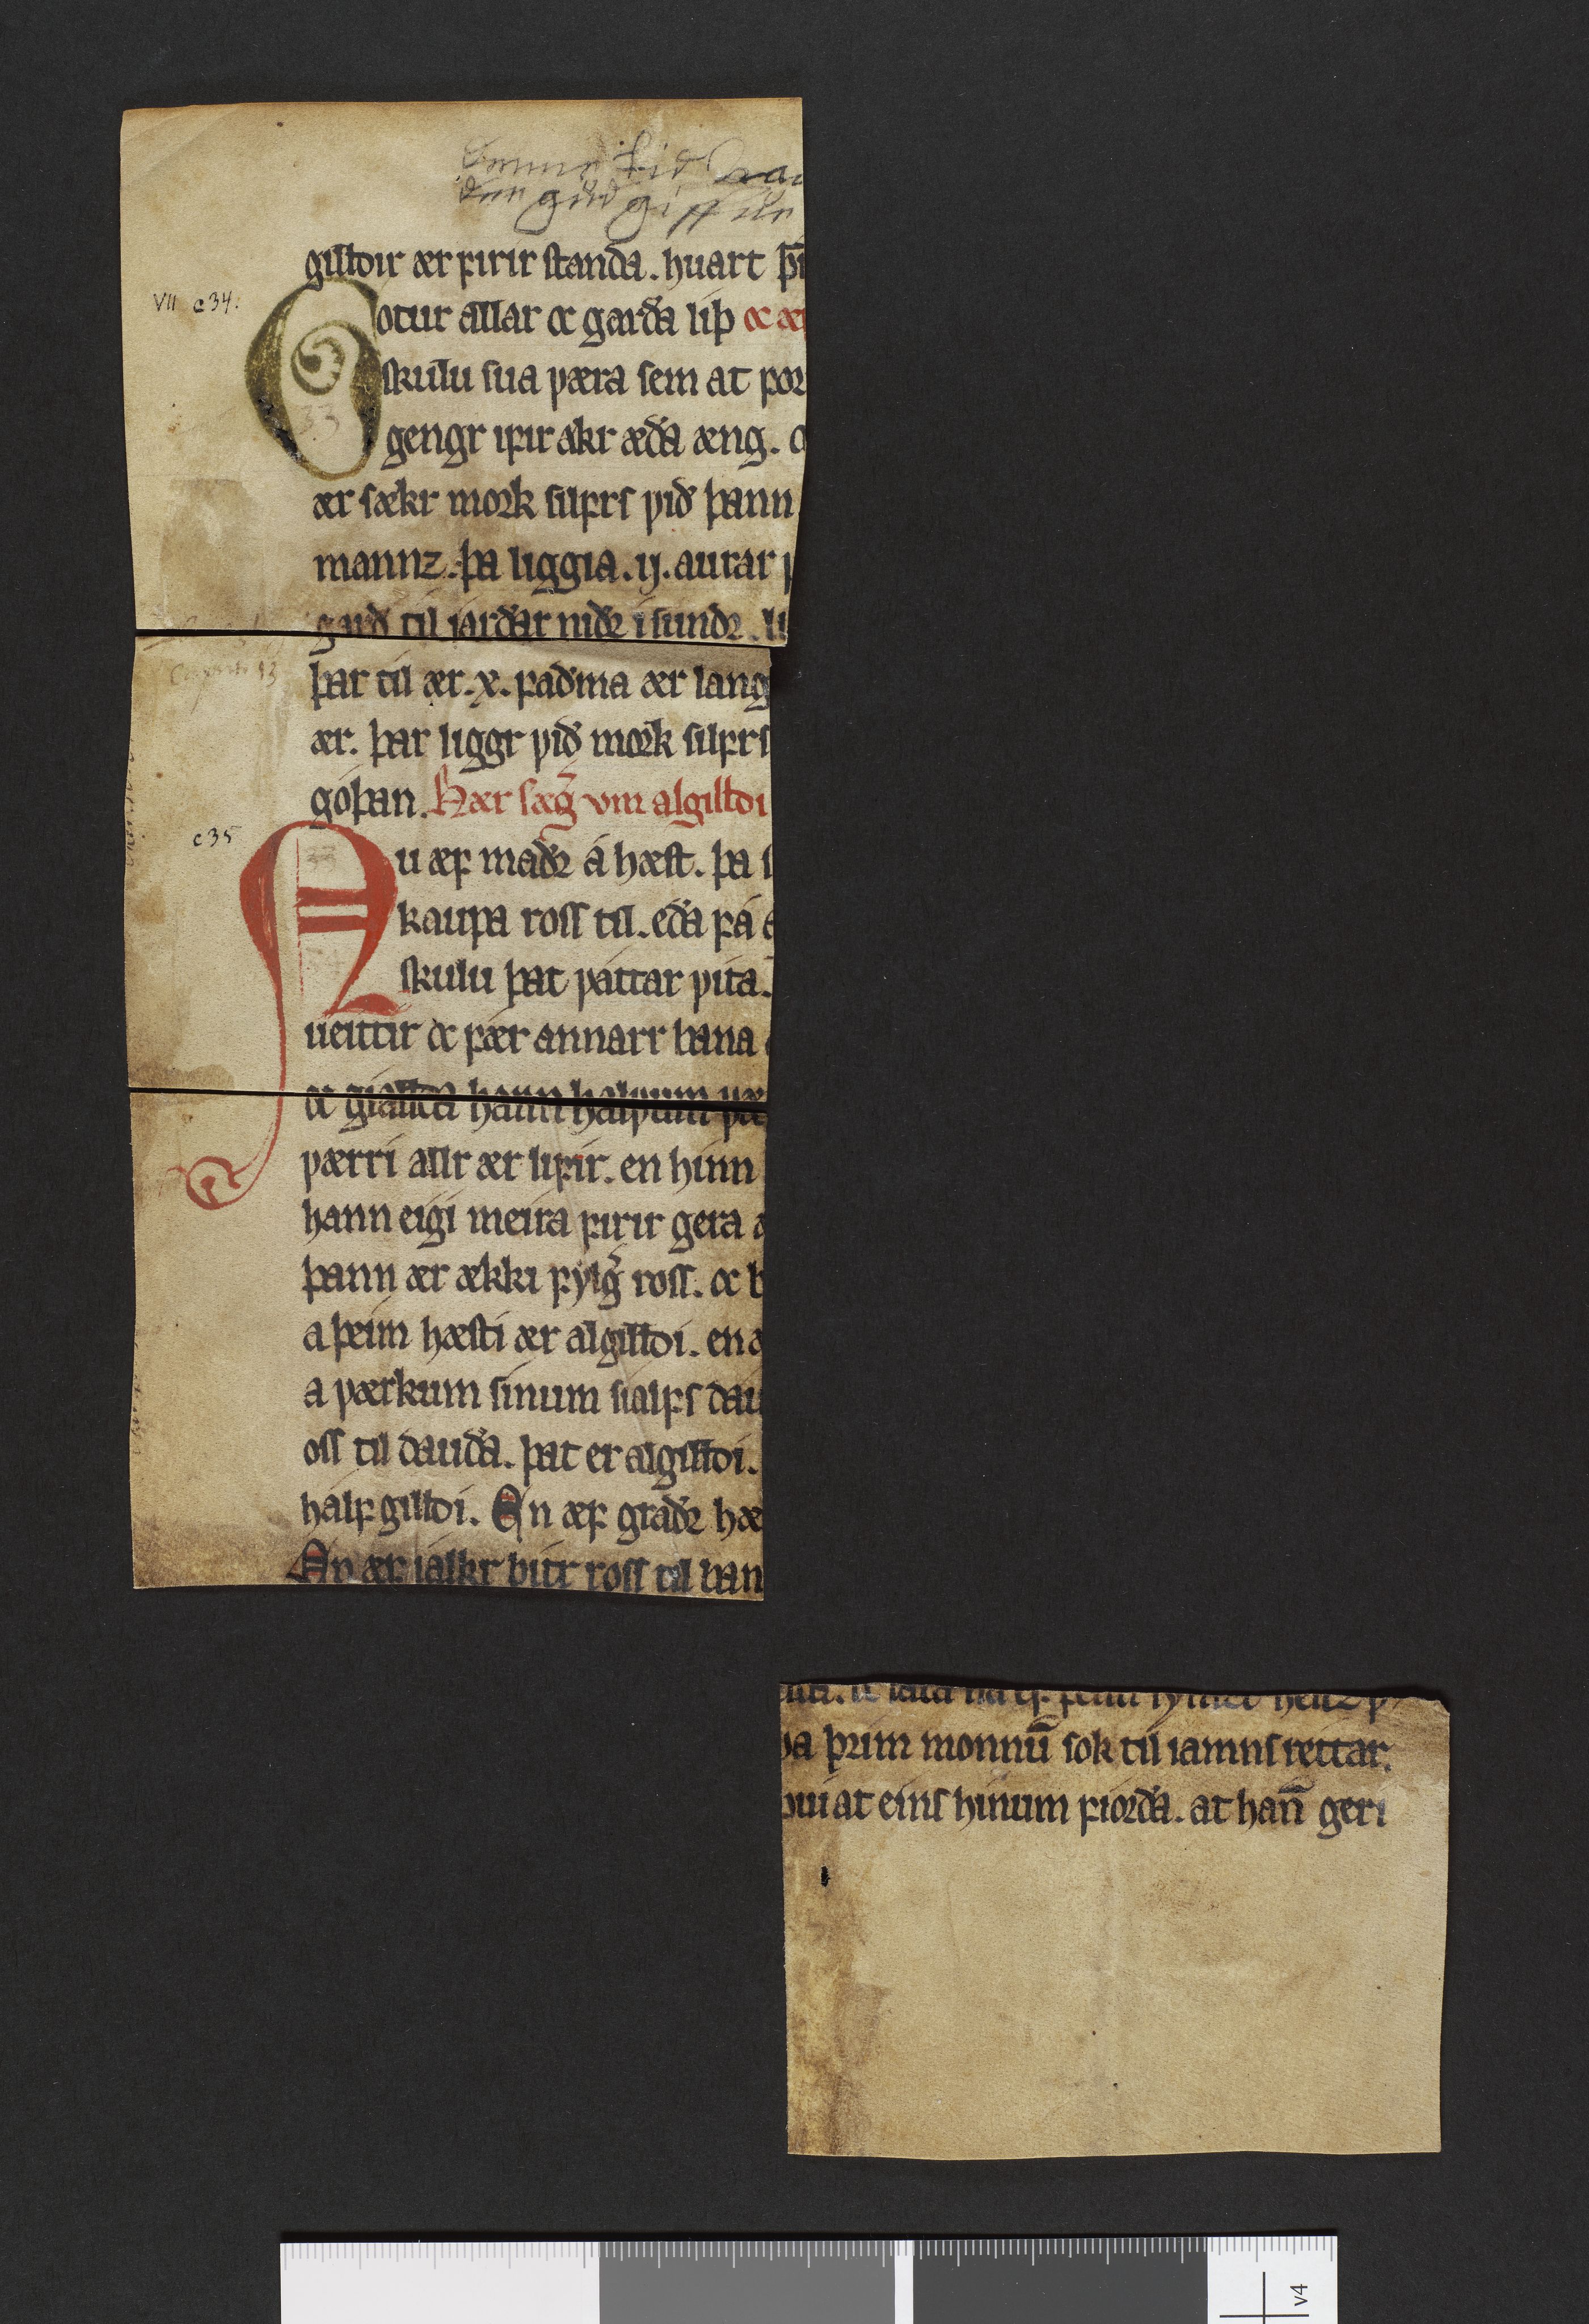 gilldir ær firir standa. huart þ
VII c 34.
Gotur allar oc garða liþ oc æ
skulu sua væra sem at for
33
gengr ifir akr æða æng. o
ær sækr mork silfrs við þann
mannz. þa liggia. ij. aurar
garð til iarðar niðr i sundr. li
þar til ær. x. faðma ær lang
ær. þar liggr við mork silfrs
góþan. Hær sægr um algilldi
c 35
Nu æf maðr á hæst. þa s
kaupa ross til. eða fá
skulu þat váttar vita.
ueittir oc fær annarr bana
oc gialldi hann halfum væ
værri allr ær lifir. en hinn
hann eigi meira firir gera
þann ær ækki fylgr ross. oc b
a þeim hæsti ær algilldi. en
a værkum sinum sialfs dau
oss til dauða. þat er algilldi.
hálf gilldi. En æf graðr hæ
En æf ialkr bitr ross til ban
þa þrim monnū sok til iamnsrettar.
þuiat eins hinum fiorða. at han̄ geri
v4